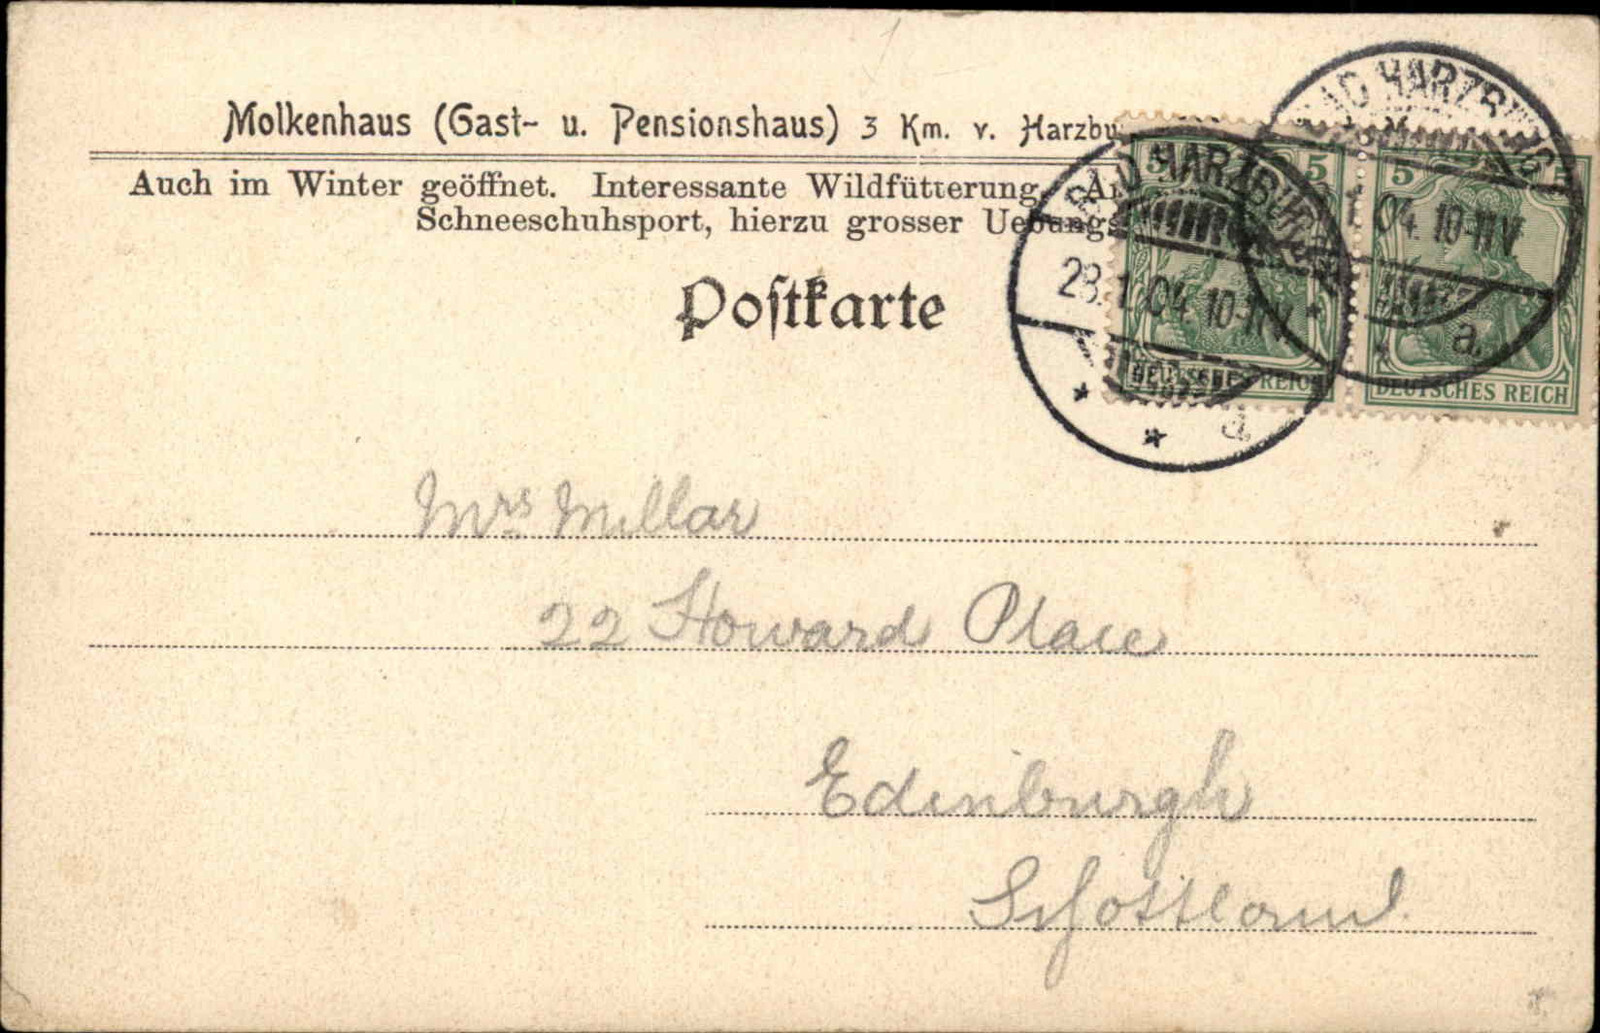 Molkenhaus (Gast- u. Pensionshaus) 3 Km. v.
Auch im Winter geöffnet. Interessante Wildfütterung.
Schneeschuhsport, hierzu grosser
Postkarte
BAD HARZBURG
28.1.04. 10-11V.
a.
BAD HARZBURG
04. 10-11V.
a.
5 5
DEUTSCHES REICH
5 5
DEUTSCHES REICH
Mrs Millar
22 Howard Place
Edinburgh
Schottland